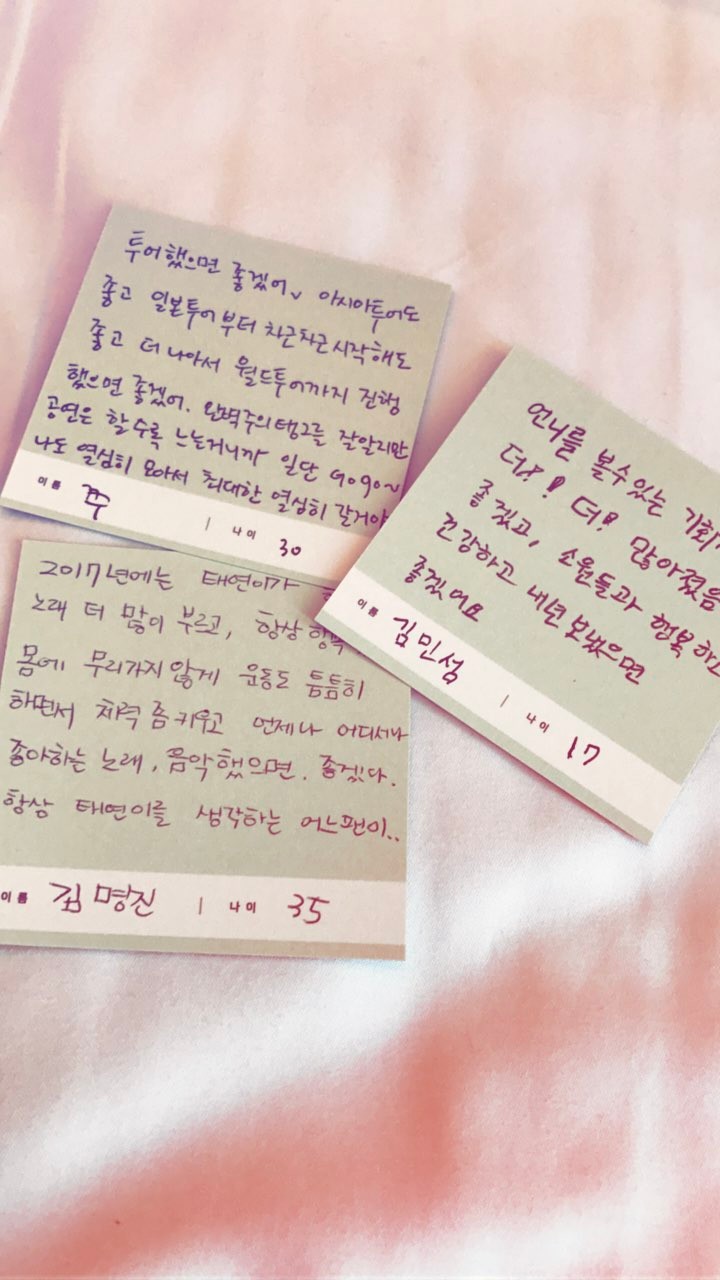 투어했으면 좋겠어, 아시아투어도
좋고 일본투어부터 차근차근 시작해도
좋고 더 나아서 월드투어까지 진행
했으면 좋겠어. 완벽주의탱그를 잘알지만
공연은 할수록 느는거니까 일단 GOgo~
나도 열심히 모아서 최대한 열심히 갈거야
이름 쭈 | 나이 30
언니를 볼수있는 기회가
더! 더! 많아졌음
좋겠고, 소원들과 행복하고
건강하고 내년 보냈으면
좋겠어요
이름 김민성 | 나이 17
2017년에는 태연이가
노래 더 많이 부르고, 항상 행복
몸에 무리가지않게 운동도 틈틈히
하면서 체력 좀 키우고 언제나 어디서나
좋아하는 노래, 음악했으면. 좋겠다.
항상 태연이를 생각하는 어느팬이..
이름 김명진 | 나이 35